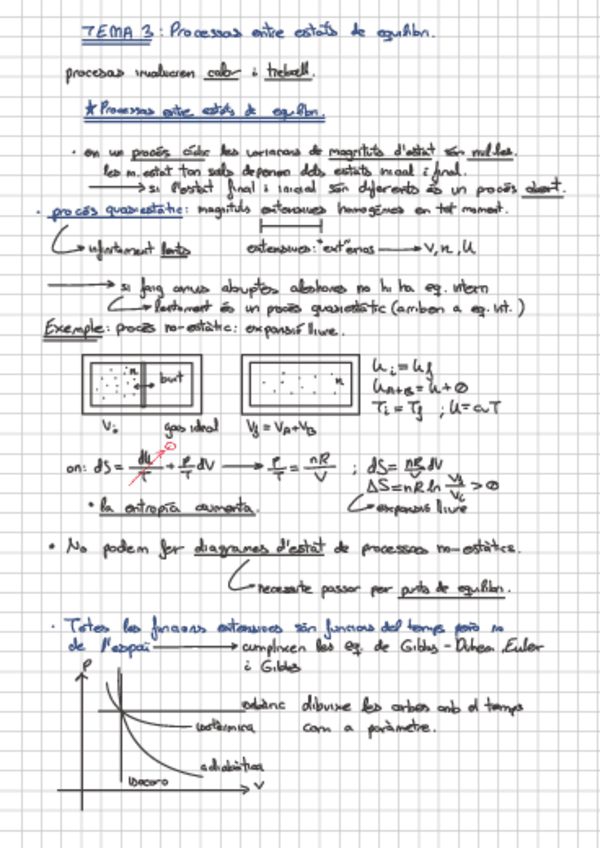 TEMA 3: Processos entre estats de equilibri.
processos involucren calor i treball.
* Processos entre estats de equilibri.
· en un procés cíclic les variacions de magnituts d'estat són nul·les.
les m. estat tan sols depenen dels estats inicial i final.
→ si l'estat final i inicial són diferents és un procés obert.
· procés quasiestàtic: magnituts extensives homogènies en tot moment.
infinitament lents extensives: "extèrias" → V, n, U
→ si faig canvis abruptes aleshores no hi ha eq. intern
lentament és un procés quasiestàtic (arriben a eq. int.)
Exemple: procés no-estàtic: expansió lliure.
n buit n
U_i = U_f
U_{A+B} = U + 0
V_i gas ideal V_f = V_A + V_B T_i = T_f ; U = cnT
on: dS = dU/T + P/T dV → P/T = nR/V ; dS = nR/V dV
0
ΔS = nR ln V_f/V_i > 0
• la entropia aumenta. expansió lliure
• No podem fer diagrames d'estat de processos no-estàtics.
necessite passar per punts de equilibri.
· Totes les funcions extensives són funcions del temps però no
de l'espai → cumplixen les eq. de Gibbs-Duhem, Euler
i Gibbs
P
isobàric dibuixe les corbes amb el temps
isotèrmica com a paràmetre.
adiabàtica
isocoro V